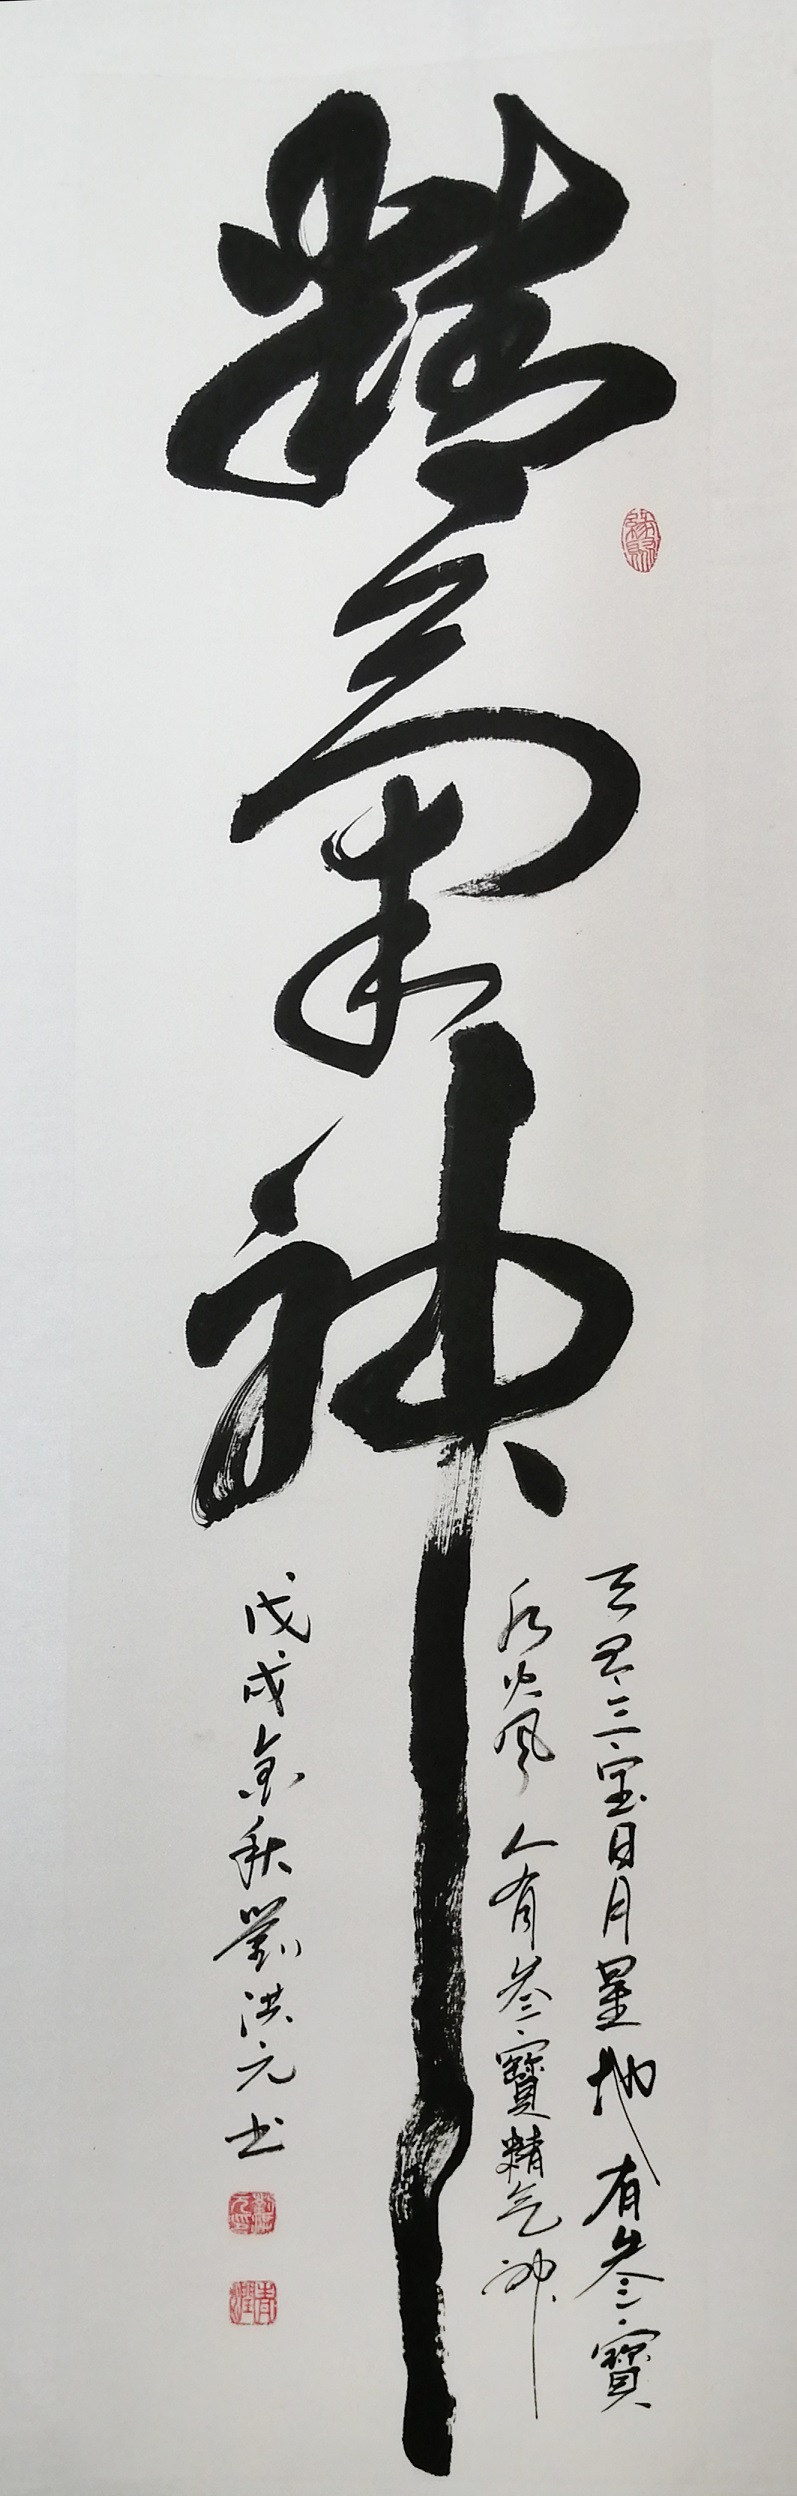 精氣神
天有三宝日月星地有叁寶
水火風人有叁寶精气神
戊戌金秋劉洪元书